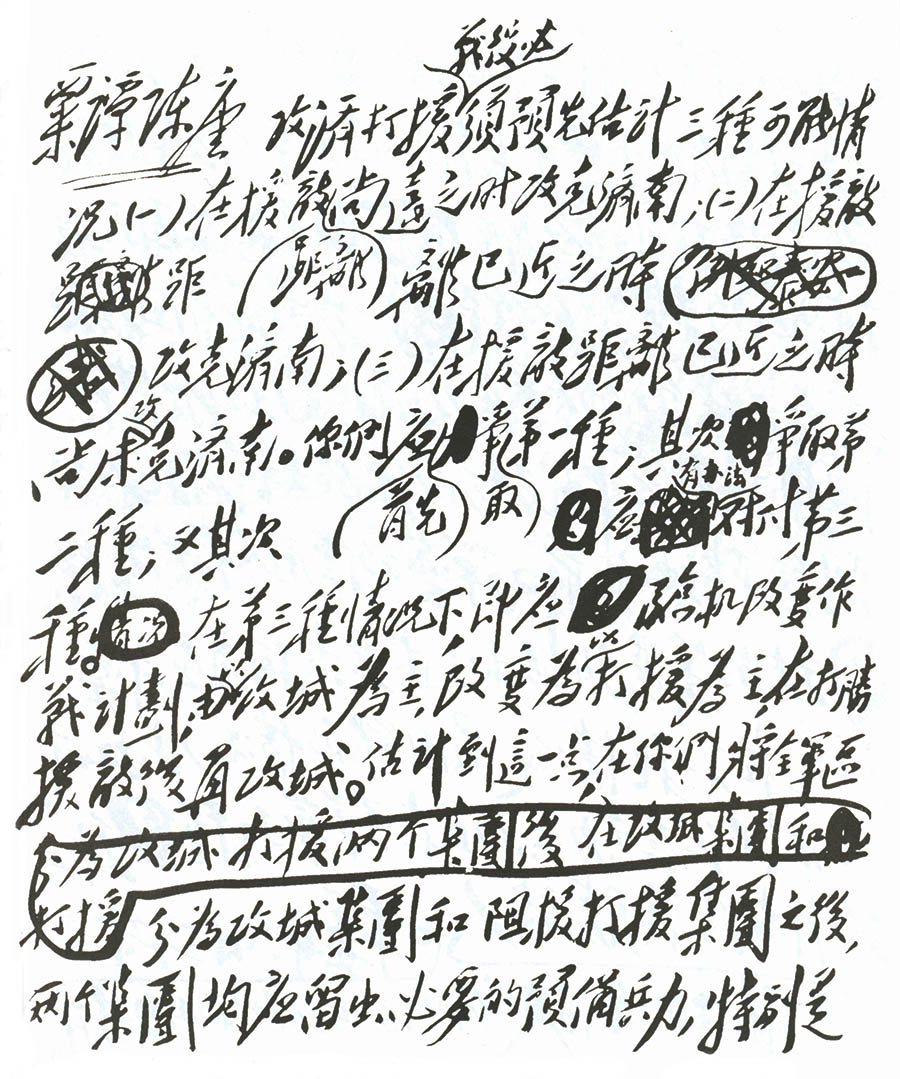 戰役必
粟譚陈唐 攻濟打援須預先估計三種可能情
况(一)在援敵尚遠之时攻克濟南;(二)在援敵
距 距離 離已近之時
攻克濟南;(三)在援敵距離已近之時
尚未攻克濟南。你們应争第一種;其次争取第
首先 取 有办法
二種;又其次 应对付第三
種。在第三種情况下,即应臨机改變作
戰計劃,由攻城為主,改變為以打援為主,在打勝
援敵後再攻城。估計到這一点,在你們將全軍區
分為攻城打援两个集團後在攻城集團和
打援 分為攻城集團和阻援打援集團之後,
两个集團均应留出必要的預備兵力,特别是